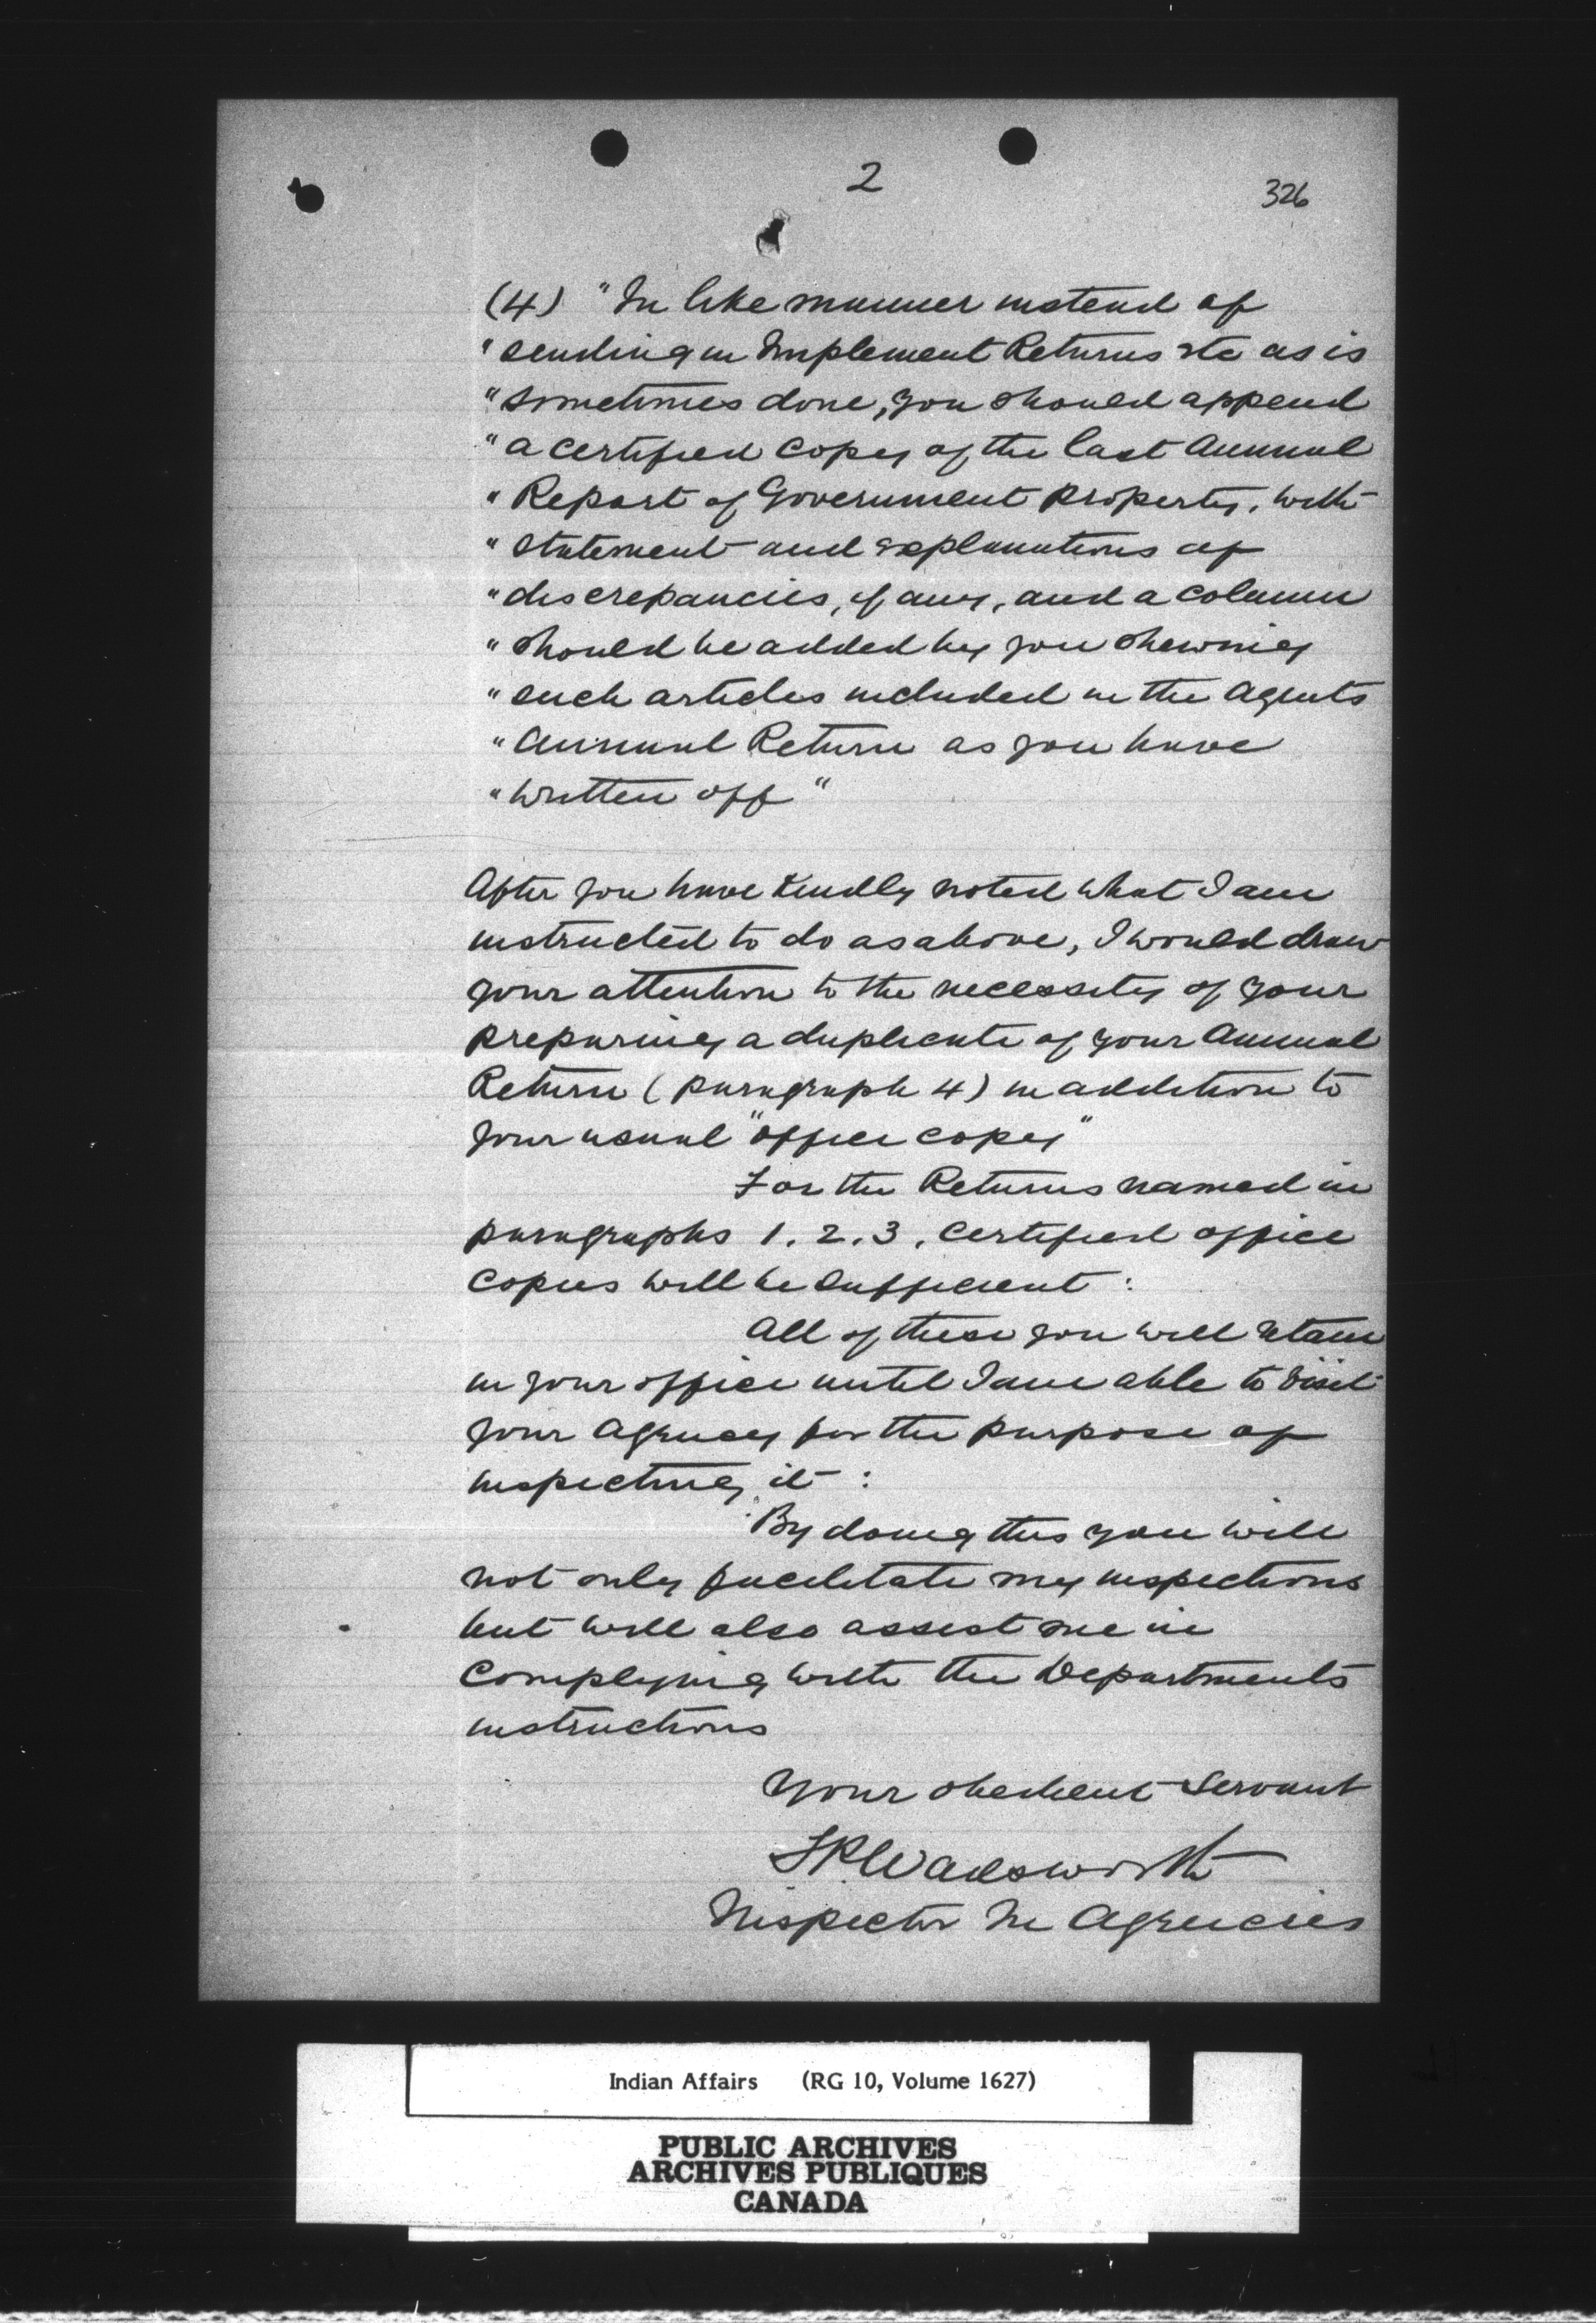 2
326
(4) "In like manner instead of
"sending in Implement Returns etc as is
"sometimes done, you should append
"a certified copy of the last Annual
"Report of Government property, with
"statement and explanations of
"discrepancies, if any, and a column
"should be added by you shewing
"such articles included in the Agents
"Annual Return as you have
"written off"
After you have kindly noted what I am
instructed to do as above, I would draw
your attention to the necessity of your
preparing a duplicate of your Annual
Return (paragraph 4) in addition to
your usual "office copy"
For the Returns named in
paragraphs 1. 2. 3. certified office
copies will be sufficient :
All of these you will retain
in your office until I am able to visit
your Agency for the purpose of
inspecting it :
By doing this you will
not only facilitate my inspections
but will also assist me in
complying with the Departments
instructions
Your obedient Servant
T.P. Wadsworth
Inspector In Agencies
Indian Affairs (RG 10, Volume 1627)
PUBLIC ARCHIVES
ARCHIVES PUBLIQUES
CANADA